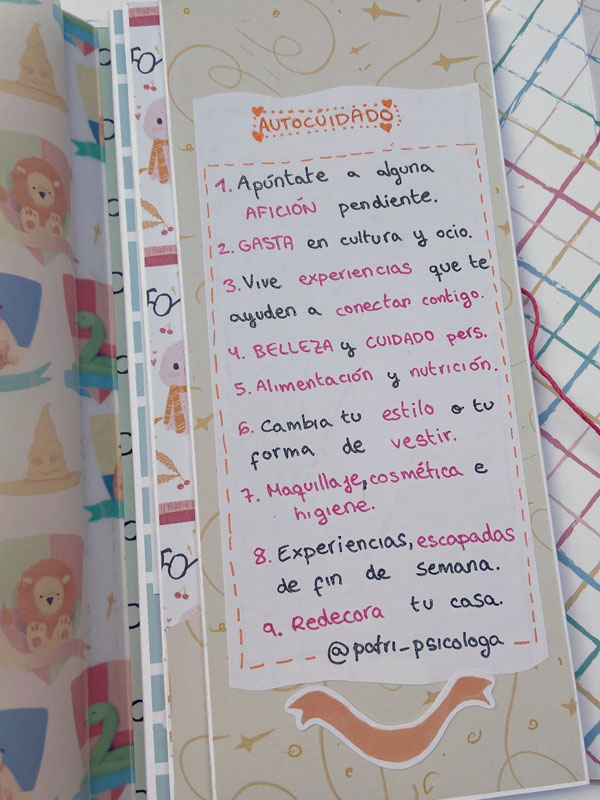 AUTOCUIDADO
1. Apúntate a alguna
AFICIÓN pendiente.
2. GASTA en cultura y ocio.
3. Vive experiencias que te
ayuden a conectar contigo.
4. BELLEZA y CUIDADO pers.
5. Alimentación y nutrición.
6. Cambia tu estilo o tu
forma de vestir.
7. Maquillaje, cosmética e
higiene.
8. Experiencias, escapadas
de fin de semana.
9. Redecora tu casa.
@patri_psicologa